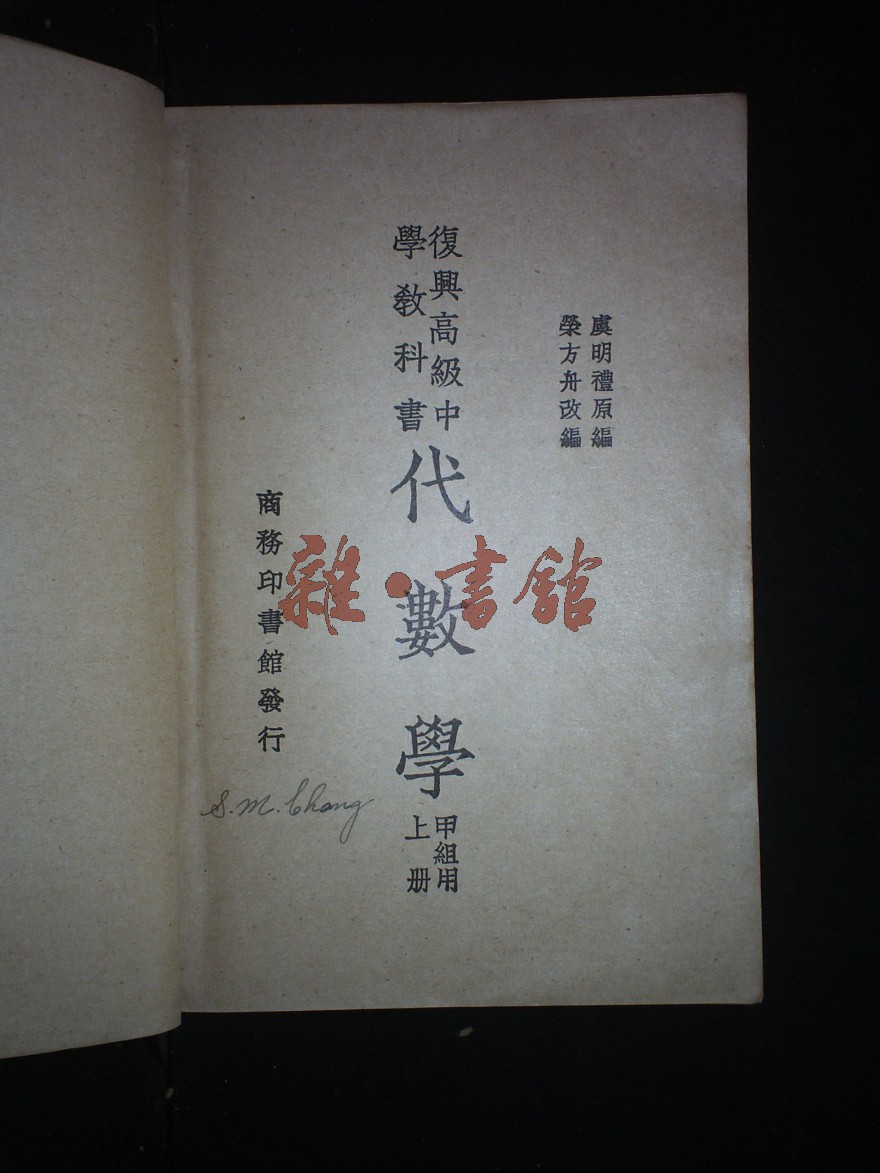 虞明禮原編
榮方舟改編
復興高級中
學教科書
代數學
甲組用
上册
商務印書館發行
S. M. Chang
雜·書館